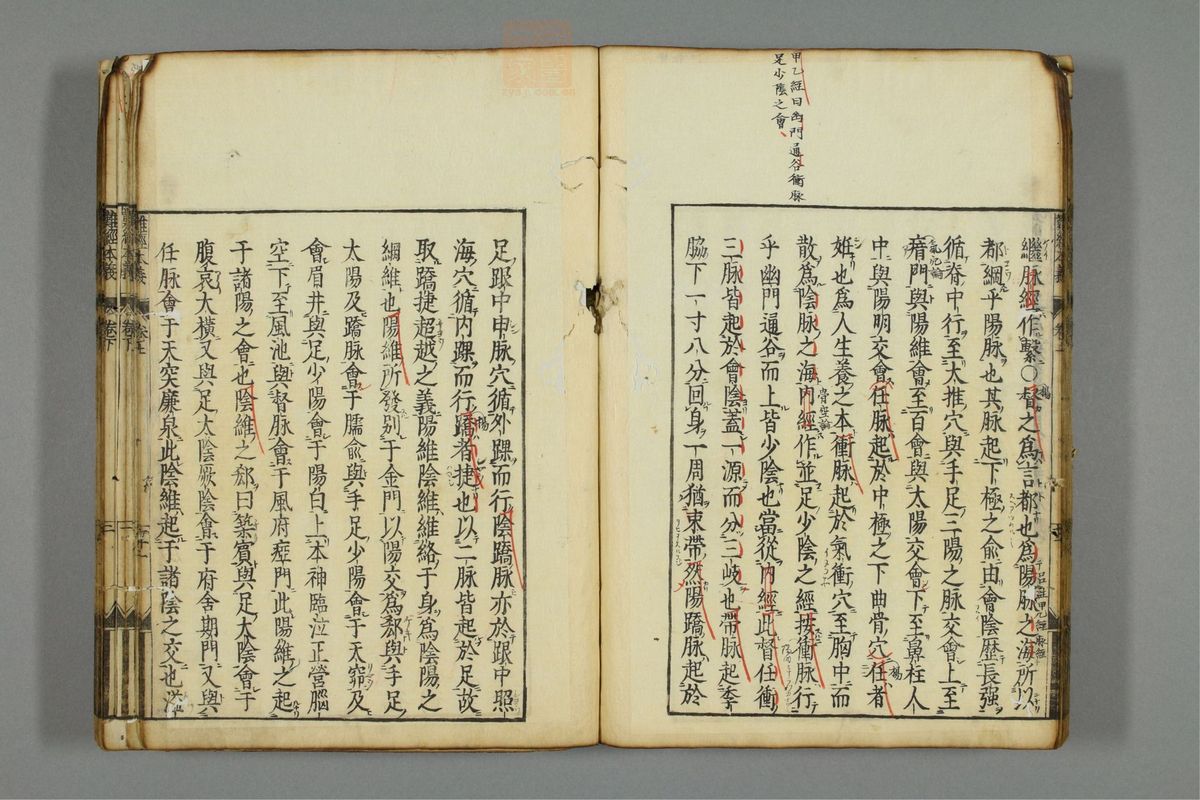 甲乙經曰幽門通谷衝脉
足少陰之會
繼脉經作繫○督之爲言都也爲陽脉之海所以
都綱乎陽脉也其脉起下極之俞由會陰歷長强
循脊中行至大椎穴與手足三陽之脉交會上至
瘖門與陽維會至百會與太陽交會下至鼻柱人
中與陽明交會任脉起於中極之下曲骨穴任者
姙也爲人生養之本衝脉起於氣衝穴至胸中而
散爲陰脉之海内經作並足少陰之經按衝脉行
乎幽門通谷而上皆少陰也當從内經此督任衝
三脉皆起於會陰蓋一源而分三岐也帶脉起季
脇下一寸八分回身一周猶束帶然陽蹻脉起於
足跟中申脉穴循外踝而行陰蹻脉亦於跟中照
海穴循内踝而行蹻者捷也以二脉皆起於足故
取蹻捷超越之義陽維陰維維絡于身爲陰陽之
綱維也陽維所發别于金門以陽交爲郄與手足
太陽及蹻脉會于臑俞與手足少陽會于天窌及
會眉井與足少陽會于陽白上本神臨泣正營腦
空下至風池與督脉會于風府瘂門此陽維之起
于諸陽之會也陰維之郄曰築賓與足太陰會于
腹哀大横又與足太陰厥陰會于府舍期門又與
任脉會于天突廉泉此陰維起于諸陰之交也溢
難經本義
卷下